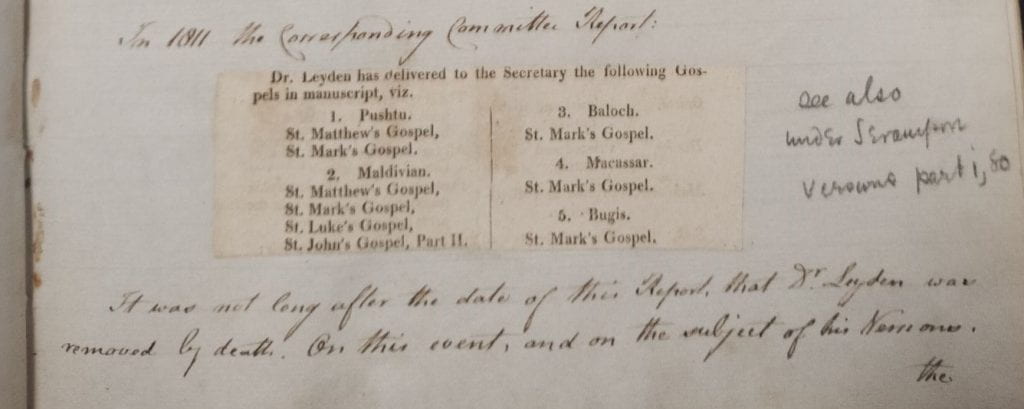 In 1811 the Corresponding Committee Report:
Dr. Leyden has delivered to the Secretary the following Gos-
pels in manuscript, viz.
1. Pushtu.
St. Matthew's Gospel,
St. Mark's Gospel.
2. Maldivian.
St. Matthew's Gospel,
St. Mark's Gospel,
St. Luke's Gospel,
St. John's Gospel, Part II.
3. Baloch.
St. Mark's Gospel.
4. Macassar.
St. Mark's Gospel.
5. Bugis.
St. Mark's Gospel.
see also
under Serampore
versions part i, 80
It was not long after the date of this Report, that Dr. Leyden was
removed by death. On this event, and on the subject of his Versions.
the